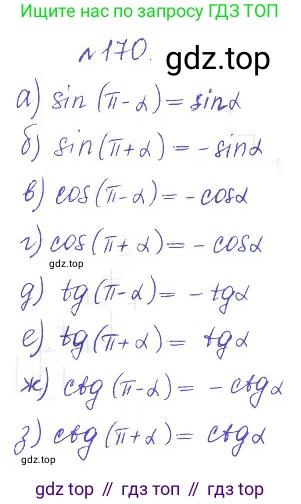 Ищите нас по запросу ГДЗ ТОП
№170.
gdz.top
а) sin(π-α)= sinα
б) sin(π+α) = -sinα
в) cos(π-α)= -cosα
г) cos(π+α)= -cosα
gdz.top
д) tg(π-α)= -tgα
е) tg(π+α)= tgα
ж) ctg(π-α)= -ctgα
gdz.top
з) ctg(π+α)= ctgα
gdz.top // gdz.top // gdz.top